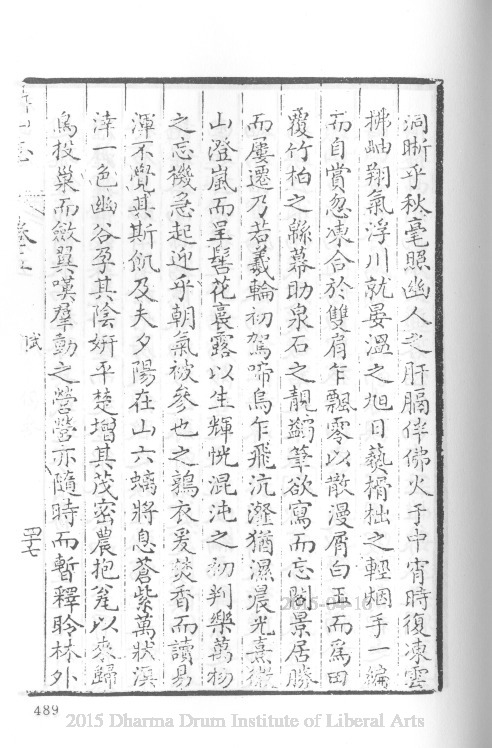 洞晰乎秋毫照幽人之肝膈伴佛火于中宵時復凍雲
拂岫翔氣浮川就晏溫之旭日爇榾柮之輕烟手一編
而自賞忽凍合於雙肩乍飄零以散漫屑白玉而為田
覆竹柏之緜幕助泉石之靚蠲筆欲寫而忘閣景居勝
而屢遷乃若羲輪初駕啼烏乍飛沆瀣猶濕晨光熹微
山澄嵐而呈髻花裛露以生輝恍混沌之初判樂萬物
之忘機急起迎乎朝氣被參也之鶉衣爰焚香而讀易
渾不覺其斯飢及夫夕陽在山六螭將息蒼紫萬狀溟
涬一色幽谷孕其陰妍平楚增其茂密農抱瓮以來歸
鳥投巢而斂翼嘆羣動之營營亦隨時而暫釋聆林外
卷五
賦
四十七
489
2015-04-16
2015 Dharma Drum Institute of Liberal Arts